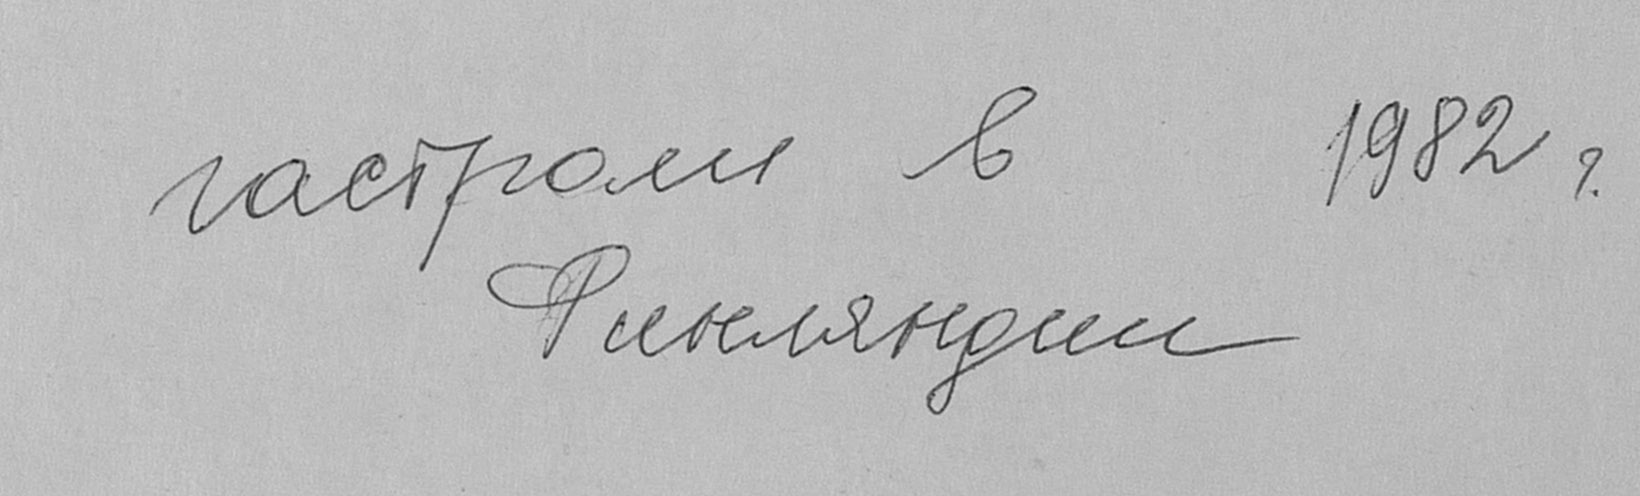 гастроли в 1982 г.
Финляндии